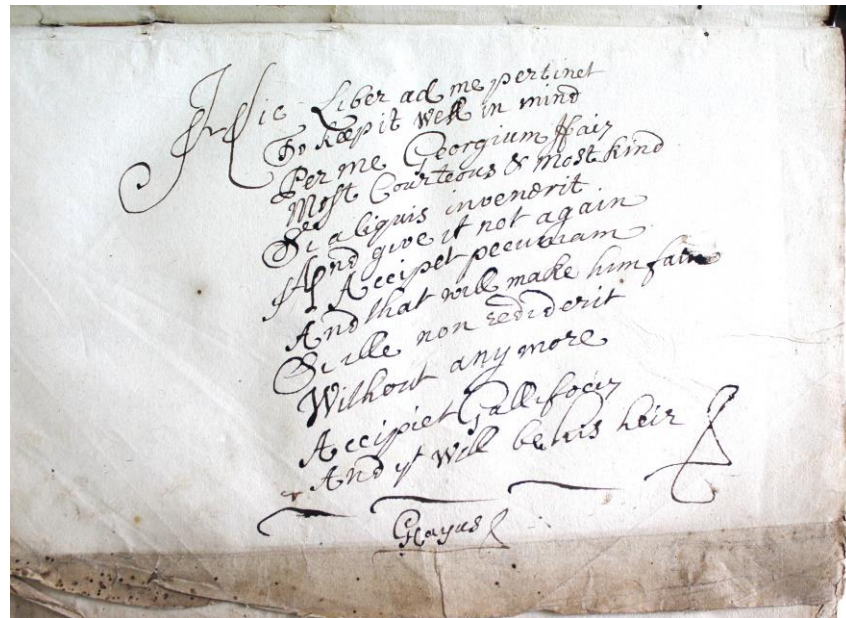 Hic Liber ad me pertinet
To keep it well in mind
Per me Georgium ffair
Most Courteous & most kind
Si aliquis invenerit
And give it not again
Accipet pecuniam
And that will make him fain
Si ille non rediderit
Without any more
Accipiet Gallifocis
And yt will be his heir